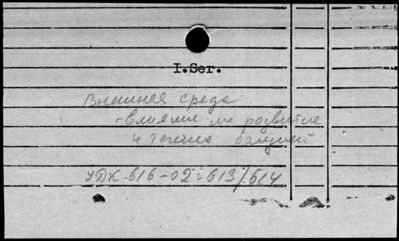 I.Ser.
Внешняя среда
- влияние на развитие
и течение болезней
УДК 616-02:613/614